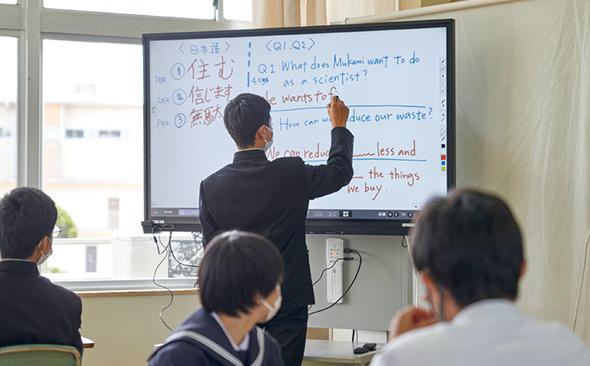 〈日本語〉
① 住む
② 信じます
③ 無駄
〈Q1.Q2〉
Q1: What does Mukami want to do
as a scientist?
He wants to
How can we reduce our waste?
We can reduce less and
the things
we buy.